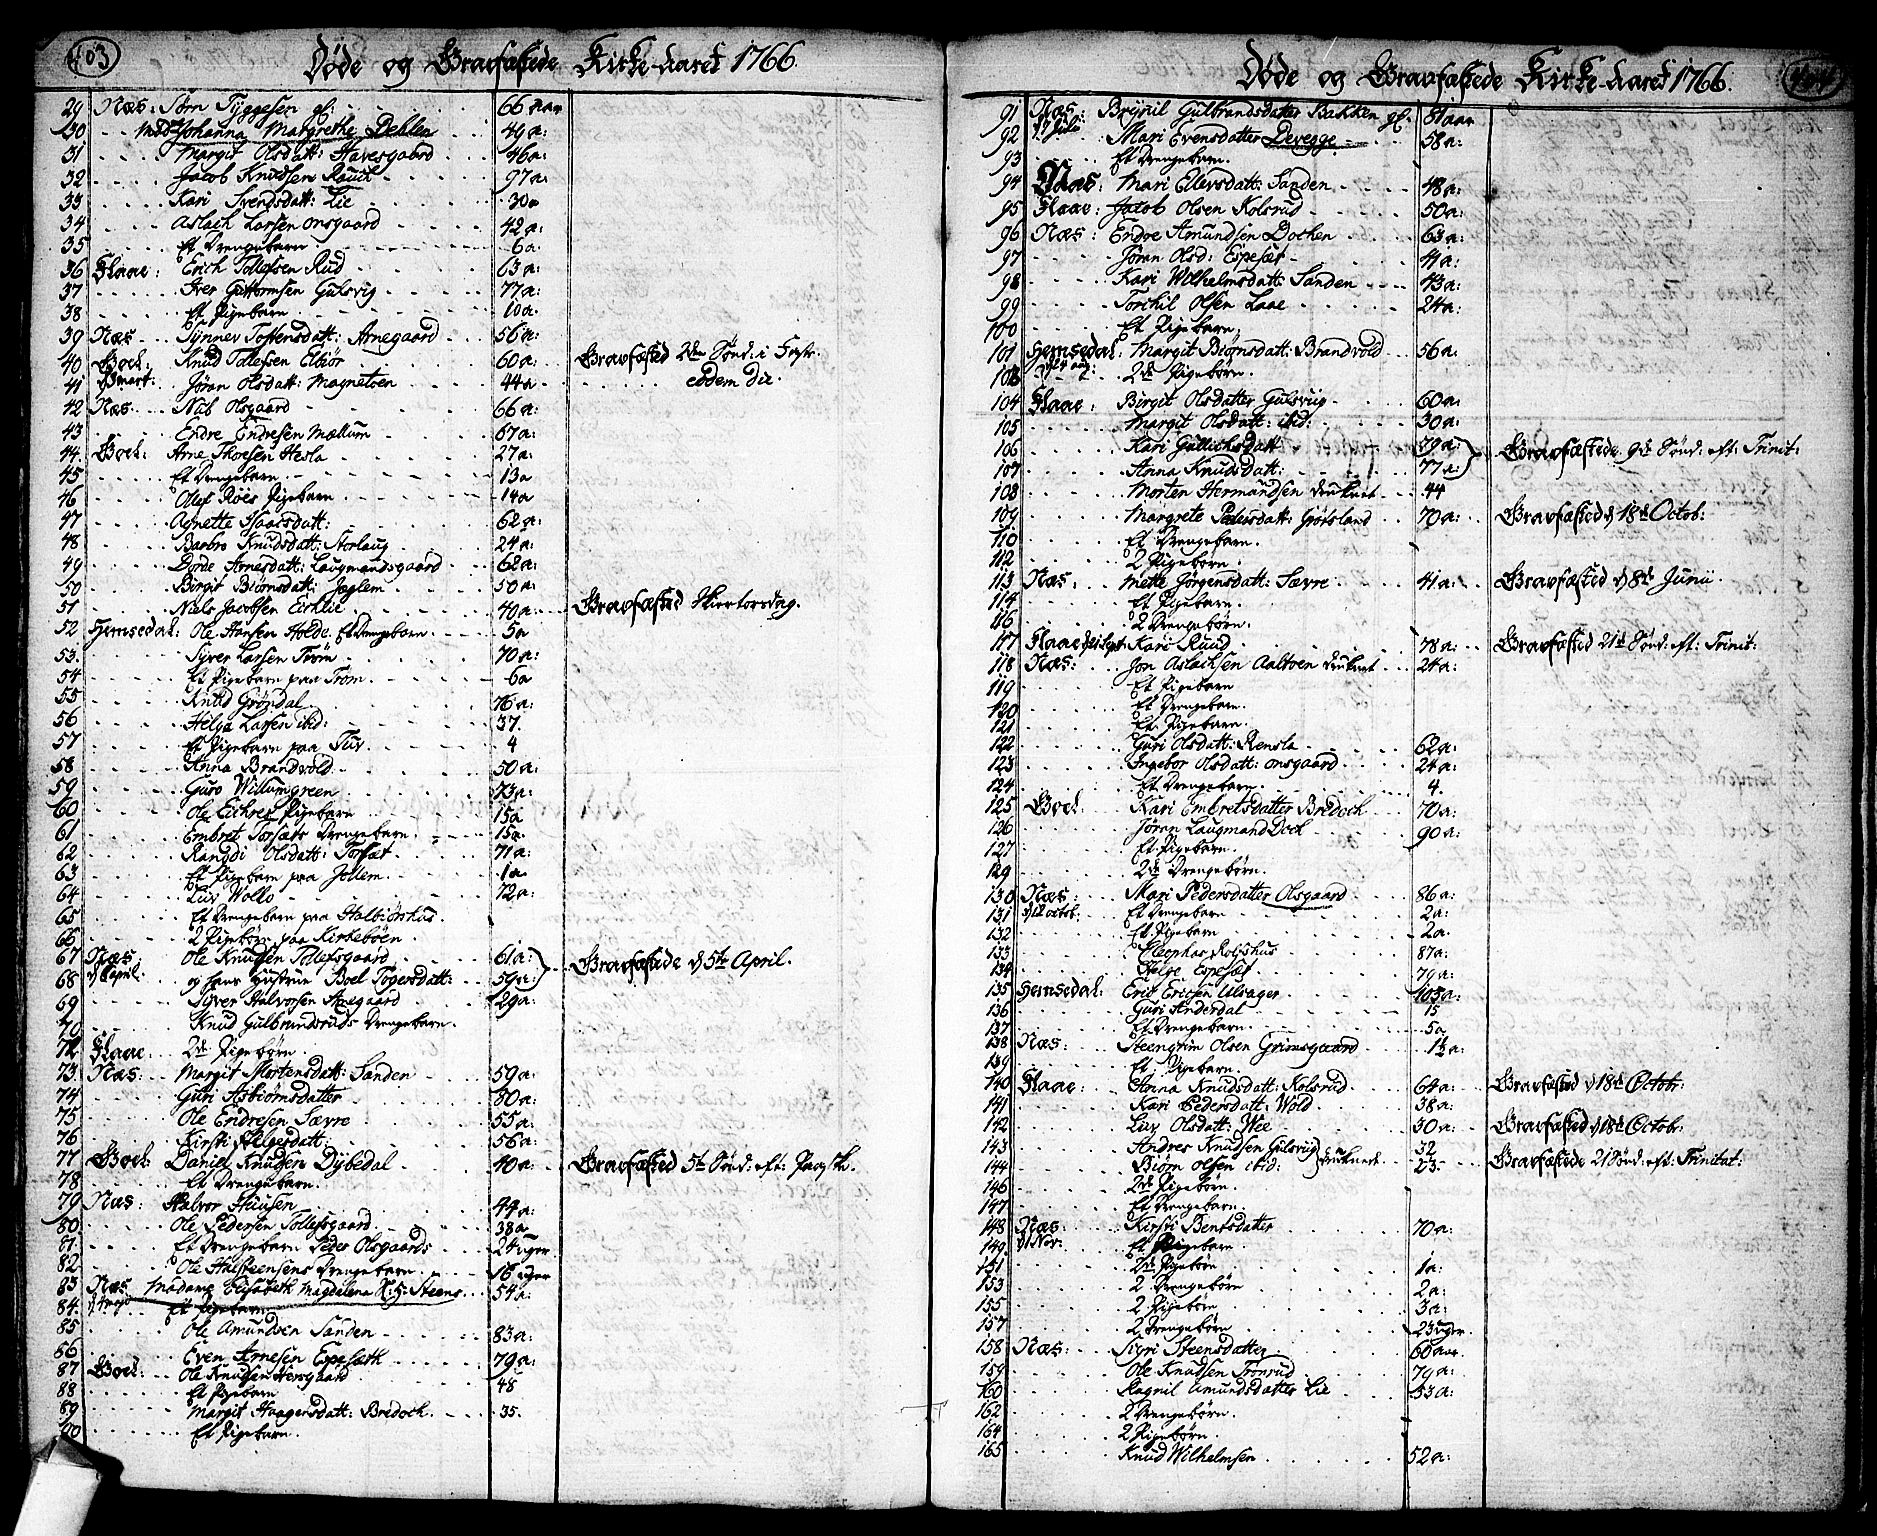 403
Døde og Gravfæstede Kirke-Aaret 1766.
29 Næs: Arn Tyggesen gl. 66 aar
30 Mad: Johanna Margrethe Dehlen 49 a:
31 Margit Olsdatt: Havesgaard 46 a:
32 Jacob Knudsen Ruud 97 a:
33 Kari Svendsdatt: Lie 30 a
34 Aslach Larsen Onsgaard 42 a:
35 Et Drengebarn 6 a
36 Flaae: Erich Tollefsen Rud 63 a:
37 Iver Guttormsen Gulsvig 77 a:
38 Et Pigebarn 10 a:
39 Næs Synnev Tostensdatt: Arnegaard 56 a:
40 Goel: Knud Tollefsen Eltiør 60 a: Gravfæsted 2den Sønd: i Fast:
41 8 Mart: Jøran Olsdatt: Magnetoen 44 a eodem die.
42 Næs: Nub Olsgaard 66 a:
43 Endre Endresen Mællum 67 a:
44 Goel: Arne Thoresen Hesla 27 a:
45 Et Drengebarn 13 a
46 Ollef Røes Pigebarn 14 a
47 Agnette Isaacsdatt: 62 a:
48 Barbro Knudsdatt: Storlaug 24 a:
49 Dorde Arnesdatt: Laugmandsgaard 62 a:
50 Birgit Biørnsdatt: Jøglem 50 a:
51 Niels Jacobsen Eichlie 40 a: Gravfæsted Skiertorsdag.
52 Hemsedal: Ole Hansen Holde Et Drengebarn 5 a
53. Syver Larsen Trøm 70 a:
54 Et Pigebarn paa Trøm 6 a
55 Knud Grøndal 76 a:
56 Helga Larsen ibid: 37.
57 Et Pigebarn paa Tuv 4
58 Anna Brandvold 50 a:
59 Guro Willumgreen 73 a:
60 Ole Eichres Pigebarn 15 a
61 Embret Torsæts Drengebarn 15 a
62 Rangdi Olsdatt: Torsæt 71 a:
63 Et Pigebarn paa Jollem 1 a
64 Liv Wollo 72 a:
65 Et Drengebarn paa Halbiørhus
66 2 Pigebørn paa Kirkebøen
67 Næs: Ole Knudsen Tollefsgaard 61 a: Gravfæstede d 5te April.
68 d 6 April. og hans Hustrue Boel Togersdatt: 59 a:
69 Syver Halvorsen Arnegaard 29 a:
70 Knud Gulbrandsruds Drengebarn.
72 Flaae 2de Pigebørn
73. Næs: Margit Mortensdatt: Sanden 59 a:
74 Guri Asbiørnsdatter 80 a:
75 Ole Endresen Sævre 55 a:
76 Kirsti Helgesdatt: 56 a:
77 Goel: Daniel Knudsen Dybedal 40 a: Gravfæsted 5te Sønd: eft: Paaske.
78 Et Drengebarn.
79 Næs: Halvor Huusen 44 a:
80 Ole Pedersen Tollefsgaard 38 a
81 Et Drengebarn Peder Olsgaards 24 uger
82 Ole Halsteensens Drengebarn 16 uger
83 Næs Madame Elisabeth Magdalena Steens 54 a:
84. Et Pigebarn
85 Ole Amundsen Sanden 83 a:
86 Even Arnesen Espesæth 79 a:
87 Goel: Ole Knudsen Hersgaard 48
88 Et Pigebarn
89 Margit Haagensdatt: Bredoch 35.
90 Et Pigebarn.
404
Døde og Gravfæstede Kirke-Aaret 1766.
91 Næs: Brynil Gulbrandsdatter Bakken gl. 81 aar
92 Mari Evensdatter Devegge 58 a:
93 Et Drengebarn.
94 Næs: Mari Ellevsdatt: Sanden 48 a:
95 Flaae: Jacob Olsen Kolsrud 50 a:
96 Næs: Endre Amundsen Dochen 63 a:
97 Jøran Olsd: Espesæt 41 a:
98 Kari Wilhelmsdatt: Sanden 43 a:
99 Torchil Olsen Laae 24 a:
100 Et Pigebarn
101 Hemsedal: Margit Biørnsdatt: Brandvold 56 a:
103 2de Pigebørn.
104 Flaae: Birgit Olsdatter Gulsvig 60 a:
105 Margit Olsdatt: ibid: 30 a:
106 Kari Gullichsdatt 79 a: Gravfæstede 9de Sønd: eft: Trinit:
107 Anna Knudsdatt: 77 a:
108 Morten Hermandsen druknet 44
109 Margrete Pedersdatt: Grøtsland 70 a: Gravfæsted d 18de Octob:
110 Et Drengebarn.
112 2 Pigebørn.
113 Næs: Mette Jørgensdatt: Sævre 41 a: Gravfæsted d 8de Junii.
114 Et Pigebarn.
116 2 Drengebørn.
117 Flaae Kari Ruud 78 a: Gravfæsted 21de Sønd: eft: Trinit:
118 Næs: Jon Aslachsen Aaltoen druknet 24 a:
119 Et Pigebarn
120 Et Drengebarn.
121 Et Pigebarn.
122 Guri Olsdatt: Rensla 62 a:
123 Ingebor Olsdatt: Onsgaard 24 a:
124 Et Drengebarn. 4.
125 Goel: Kari Embretsdatter Bredoch 70 a:
126 Jøran Laugmand Doch 90 a:
127 Et Pigebarn.
129 2de Drengebørn.
130 Næs: Mari Pedersdatter Olsgaard 86 a:
131 d 12 Octob. Et Drengebarn 2 a:
132 Et Pigebarn 2 a:
133 Cleophas Rolfshus 87 a:
134 Helge Espesæt 79 a:
135 Hemsedal: Eric Ericsen Ulsager 103 a:
136 Guri Anderdal 15
137 Et Drengebarn. 5 a
138 Næs: Steengrim Olsen Grimsgaard 1½ a:
139 Et Pigebarn.
140 Flaae: Anna Knudsdatt: Kolsrud 64 a: Gravfæsted d 18de Octobr:
141 Kari Pedersdatt: Wold 38 a:
142 Liv Olsdatt: Wee 30 a: Gravfæsted d 18de Octob:
143 Andres Knudsen Gulsvig 32
144 Biørn Olsen ibid: druknede 23 Gravfæstede 21 Sønd: eft: Trinitat:
146 2de Pigebørn.
147 Et Drengebarn.
148 Næs: Kirsti Bentsdatter 70 a:
149 d 1 Nov: Et Pigebarn.
151 2de Pigebørn 1 a:
153 2 Drengebørn 2 a:
155 2 Pigebørn 3 a:
157 2 Drengebørn 23 uger
158 Næs: Sigri Steensdatter 60 aar
159 Ole Knudsen Trorud 79 a:
160 Ragnil Amundsdatter Lie 53 a:
162 2 Drengebørn.
164 2 Pigebørn.
165 Knud Wilhelmsen 52 a: